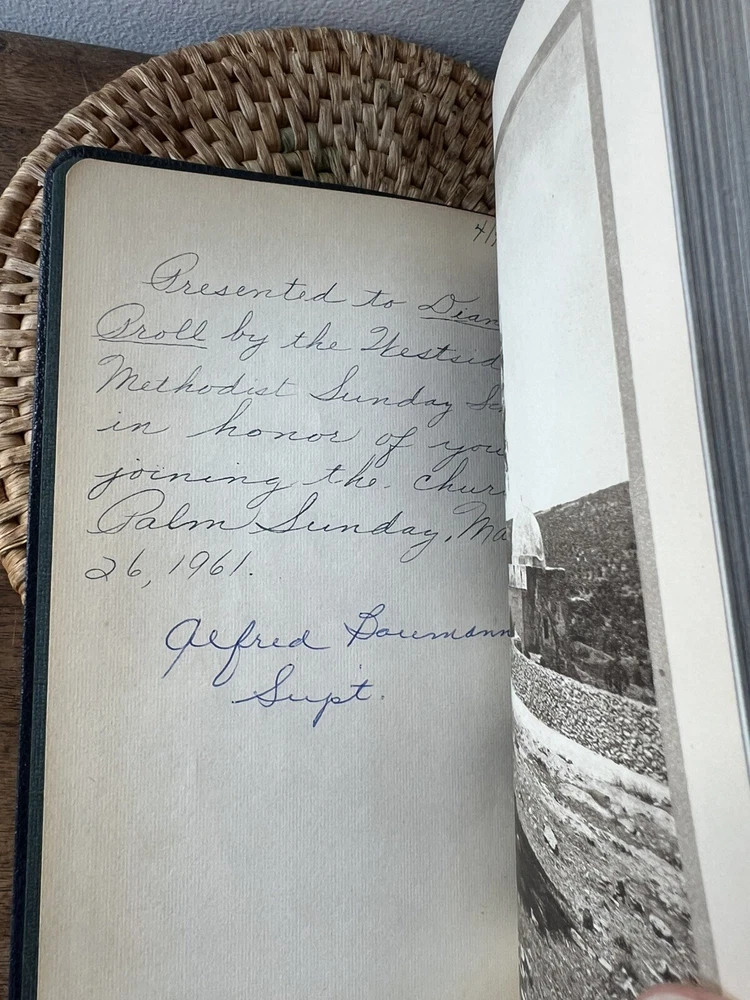 4/
Presented to Dian
Proll by the Westsid
Methodist Sunday Sc
in honor of you
joining the chur
Palm Sunday, Ma
26, 1961.
Alfred Baumann
Supt.